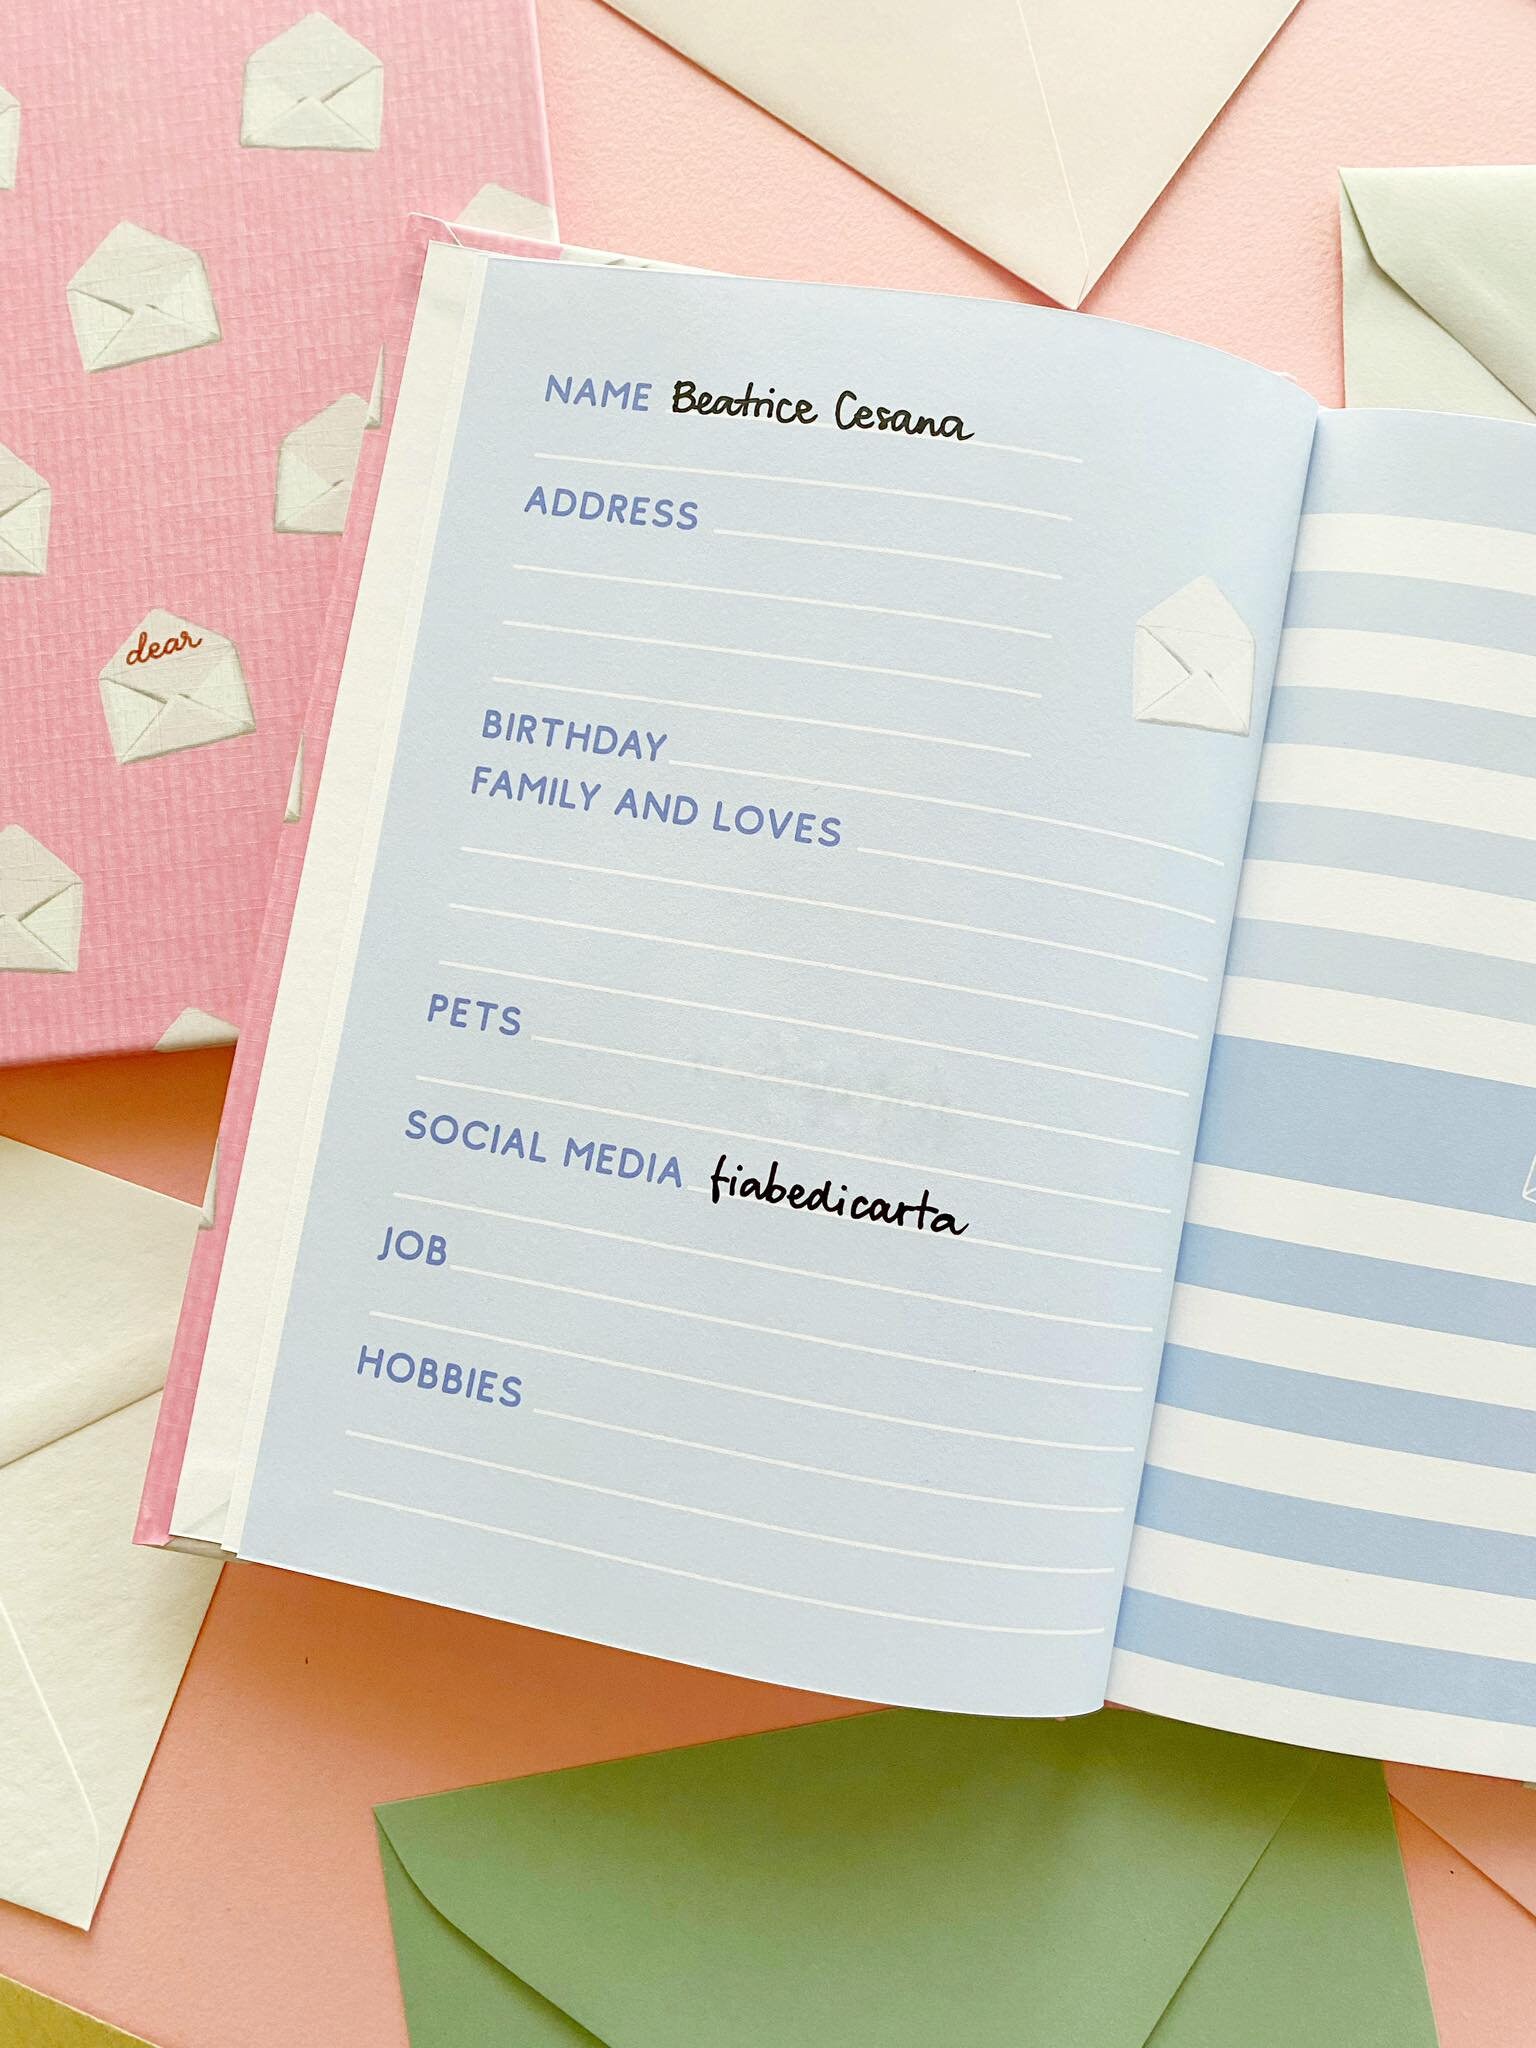 dear
NAME Beatrice Cesana
ADDRESS
BIRTHDAY
FAMILY AND LOVES
PETS
SOCIAL MEDIA fiabedicarta
JOB
HOBBIES